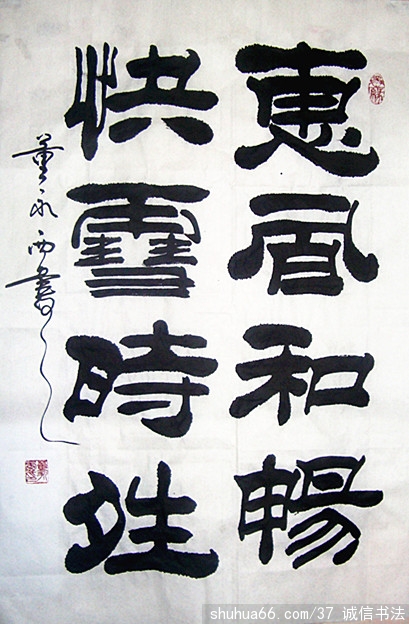 惠風和暢
快雪時夝
董永西書
shuhua66.com/37_诚信书法